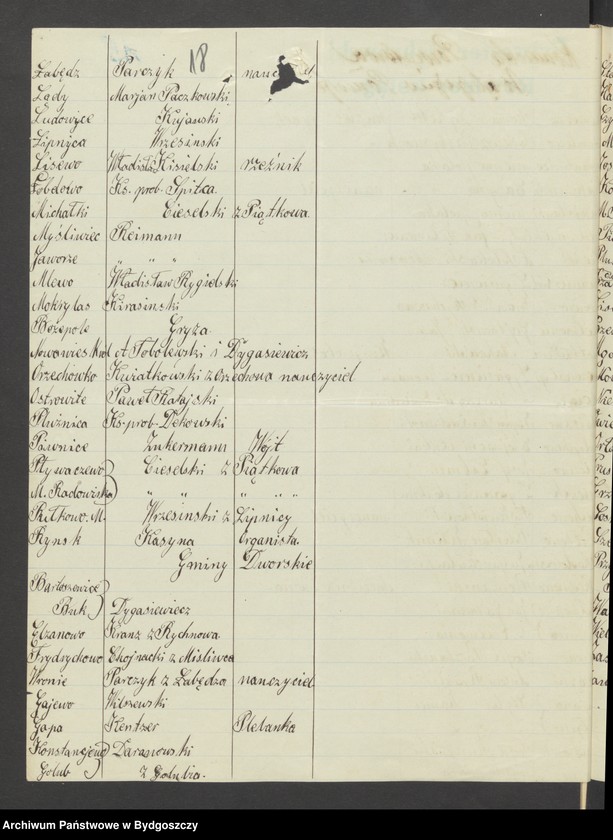 18
Łabędz Parczyk nauc
Lądy Marjan Paczkowski
Ludowice Kujawski
Lipnica Wrzesinski
Lisewo Władisław Kisielski rzeźnik
Łobdowo Ks. prob. Spitca
Michałki Cieselski z Piątkowa
Myśliwiec Reimann
Jaworze " " "
Mlewo Władisław Rygielski
Mokrylas Kirasinski
Bożepole Gryza
Nowawies Król. A. Tobolewski i Dygasiewicz
Orzechówko Kwiatkowski z Orzechowa nauczyciel
Ostrowite Paweł Ratajski
Płużnica Ks. prob. Dekowski
Piwnice Zukermann Wójt
Pływaczewo) Cieselski z Piątkowa
M. Radowiska) " " " " "
Pułkowo. M. Wrzesinski z Lipnicy
Rynsk Kasyna Organista
Gminy Dworskie
Bartoszewice)
Buk.) Dygasiewicz
Elzanowo Kranz z Rychnowa
Frydrychowo Chojnacki z Misliwca
Wronie Parczyk z Łabędza nauczyciel
Gajewo Wilszewski
Gapa Kentzer Plebanka
Konstancjewo) Daranowski
Golub) z Golubia.
Archiwum Państwowe w Bydgoszczy